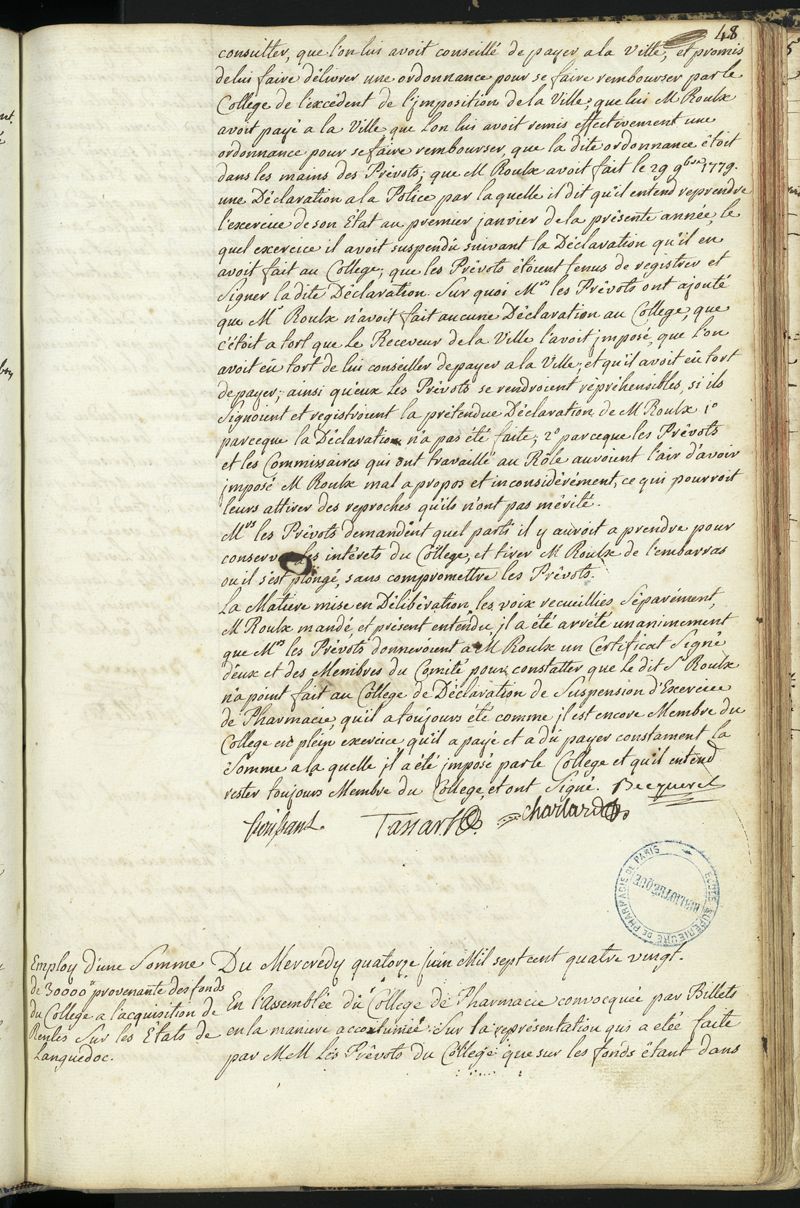 48
consulter, que l'on lui avoit conseillé de payer a la Ville, et promis
de lui faire délivrer une ordonnance pour se faire rembourser par le
College de l'excédent de l'jmposition de la Ville, que lui M Roulx
avoit payé a la Ville que l'on lui avoit remis effectivement une
ordonnance pour se faire rembourser, que la dite ordonnance étoit
dans les mains des Prévots; que M Roulx avoit fait le 29 9bre 1779.
une Déclaration a la Police par laquelle il dit qu'il entend reprendre
l'exercice de son Etat au premier janvier de la présente année, le
quel exercice il avoit suspendu suivant la Déclaration qu'il en
avoit fait au College; que les Prévots étoient tenus de registrer et
Signer la dite Déclaration. Sur quoi Mrs les Prévots ont ajouté
que Mr Roulx n'avoit fait aucune Déclaration au College, que
c'étoit a tort que le Receveur de la Ville l'avoit jmposé, que l'on
avoit eû tort de lui conseiller de payer a la Ville, et qu'il avoit eû tort
de payer; ainsi qu'eux Les Prévots se rendroient répréhensibles, si ils
Signoient et registroient la prétendue Déclaration de M Roulx 1o
parceque la Déclaration n'a pas été faite, 2o parceque les Prévots
et les Commissaires qui ont travaillé au Rôle auroient l'air d'avoir
jmposé M Roulx mal a propos et inconsidérément, ce qui pourroit
leurs attirer des reproches qu'ils n'ont pas mérité.
Mrs les Prévots demandent quel parti il y auroit a prendre pour
conserver les intérets du College, et tirer M Roulx de l'embarras
ou il s'est plongé, sans compromettre les Prévots.
La Matiere mise en Délibération, les voix recueillies Séparément,
M Roulx mandé, et présent entendu, jl a été arrêté unanimement
que Mrs les Prévots donneroient a M Roulx un Certificat Signé
d'eux et des Membres du Comité pour constatter que le dit Sr Roulx
n'a point fait au College de Déclaration de Suspension d'Exercice
de Pharmacie, qu'il a toujours été comme jl est encore Membre du
College en plein exercice qu'il a payé et a dû payer constament la
Somme a la quelle jl a été jmposé par le College et qu'il entend
rester toujours Membre du College, et ont Signé. Becquerel
Tassart Charlard
ECOLE SUPERIEURE DE PHARMACIE DE PARIS
BIBLIOTHEQUE
Employ d'une Somme
de 30000# provenante des fonds
du College a l'acquisition de
Rentes Sur les Etats de
Languedoc.
Du Mercredy quatorze Juin Mil sept cent quatre vingt.
En l'assemblée du College de Pharmacie convocquée par Billets
en la maniere accoutumée. Sur la représentation qui a été faite
par MM Les Prévots du College que sur les fonds étant dans